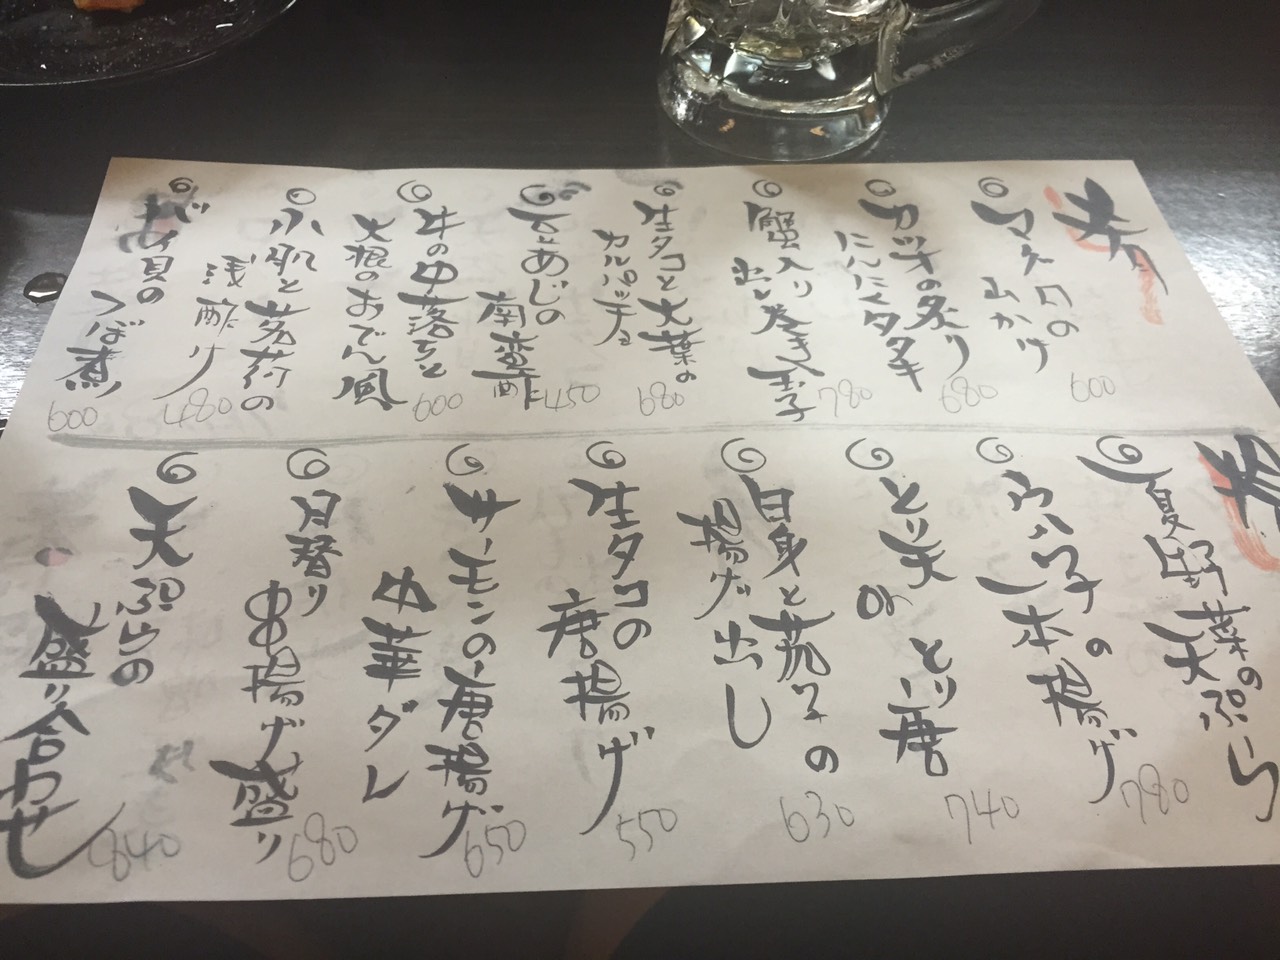 肴
マグロの
山かけ
600
カツオの炙り
にんにくタタキ
680
蟹入り
出し巻き玉子
780
生タコと大葉の
カルパッチョ
680
豆あじの
南蛮酢
450
牛の中落ちと
大根のおでん風
600
小肌と茗荷の
浅酢〆
480
貝の
つぼ煮
600
夏野菜の
天ぷら
780
穴子の
一本揚げ
740
とり天
or とり唐
630
白身と茄子の
揚げ出し
生タコの
唐揚げ
550
サーモンの唐揚げ
中華ダレ
650
日替り
串揚げ盛り
680
天ぷらの
盛り合わせ
840